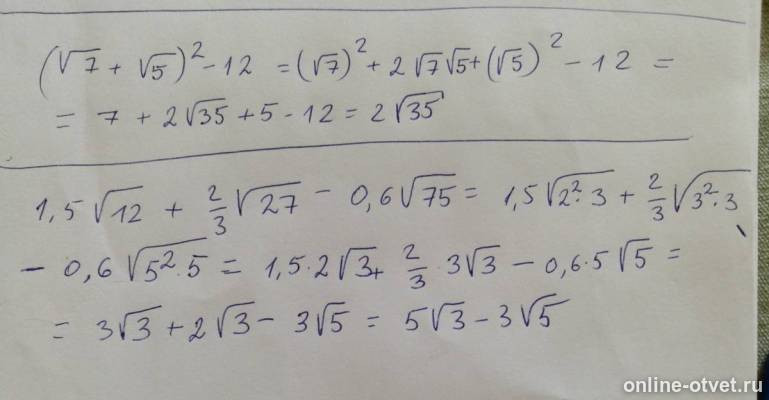 (√7 + √5)² - 12 = (√7)² + 2√7√5 + (√5)² - 12 =
= 7 + 2√35 + 5 - 12 = 2√35
1,5√12 + 2/3√27 - 0,6√75 = 1,5√2²·3 + 2/3√3²·3
- 0,6√5²·5 = 1,5·2√3 + 2/3·3√3 - 0,6·5√5 =
= 3√3 + 2√3 - 3√5 = 5√3 - 3√5
online-otvet.ru